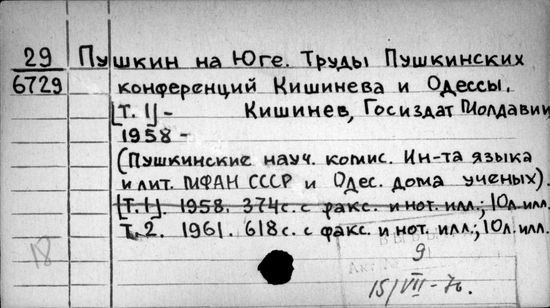 29 Пушкин на Юге. Труды Пушкинских
6729 конференций Кишинева и Одессы.
[Т. 1] - Кишинев, Госиздат Молдавии,
1958 -
(Пушкинские науч. комис. Ин-та языка
и лит. МФАН СССР и Одес. дома ученых).
[Т. 1]. 1958. 374 с. с факс. и нот. илл.; 10 л. илл.
Т. 2. 1961. 618 с. с факс. и нот. илл.; 10 л. илл.
18
9
15/VII-76.